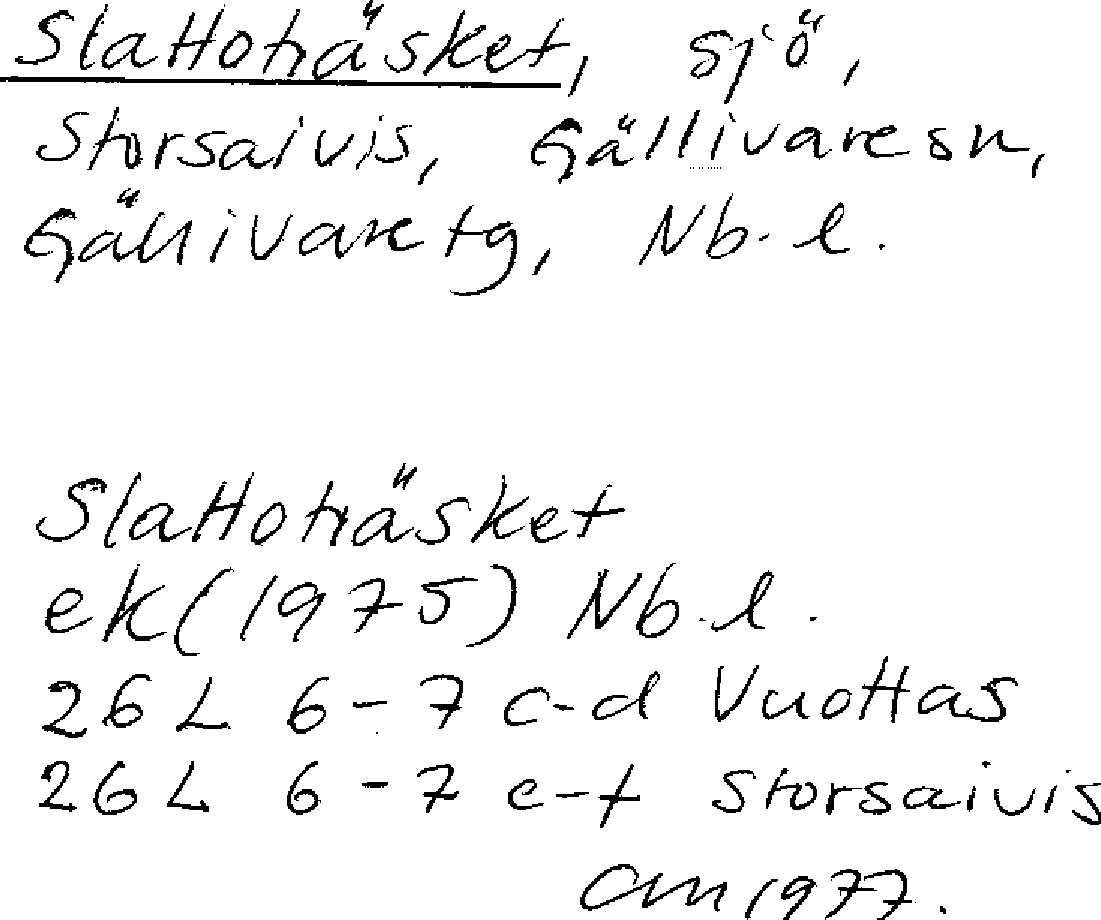 Slattoträsket, sjö,
Storsaivis, Gällivare sn,
Gällivare tg, Nb. l.
Slattoträsket
ek (1975) Nb. l.
26 L 6-7 c-d Vuottas
26 L 6-7 e-f Storsaivis
CM 1977.